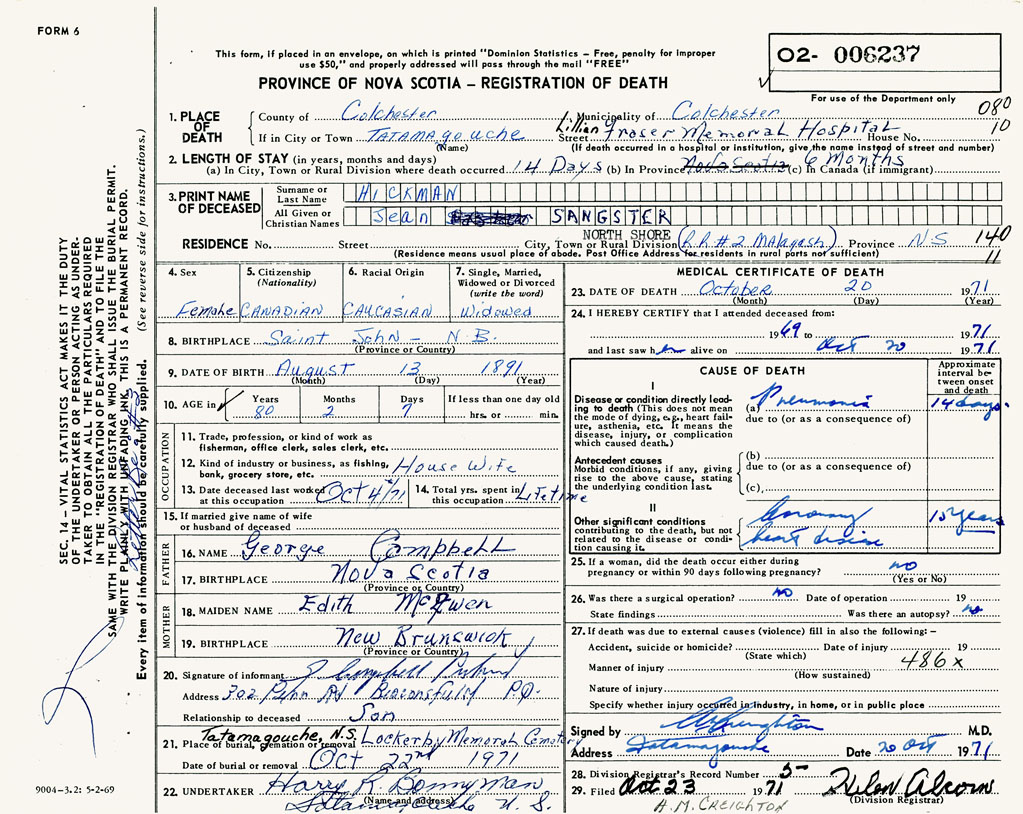 FORM 6
O2- 006237
This form, if placed in an envelope, on which is printed "Dominion Statistics – Free, penalty for improper
use $50," and properly addressed will pass through the mail "FREE"
PROVINCE OF NOVA SCOTIA – REGISTRATION OF DEATH
For use of the Department only
080
10
1. PLACE OF DEATH
County of Colchester Municipality of Colchester
If in City or Town TATAMAGOUCHE Street Lillian Fraser Memorial Hospital House No.
(Name) (If death occurred in a hospital or institution, give the name instead of street and number)
2. LENGTH OF STAY (in years, months and days)
(a) In City, Town or Rural Division where death occurred 14 Days (b) In Province Nova Scotia (c) In Canada (if immigrant) 6 Months
3. PRINT NAME OF DECEASED
Surname or Last Name HICKMAN
All Given or Christian Names Jean SANGSTER
NORTH SHORE
RESIDENCE No. Street City, Town or Rural Division (R.R#2 Malagash) Province N.S 140
11
(Residence means usual place of abode. Post Office Address for residents in rural parts not sufficient)
4. Sex Female
5. Citizenship (Nationality) CANADIAN
6. Racial Origin CAUCASIAN
7. Single, Married, Widowed or Divorced (write the word) Widowed
8. BIRTHPLACE Saint John – N B.
(Province or Country)
9. DATE OF BIRTH August 13 1891
(Month) (Day) (Year)
10. AGE in Years 80 Months 2 Days 7 If less than one day old hrs. or min.
OCCUPATION
11. Trade, profession, or kind of work as
fisherman, office clerk, sales clerk, etc.
12. Kind of industry or business, as fishing,
bank, grocery store, etc. House Wife
13. Date deceased last worked
at this occupation Oct 4/71
14. Total yrs. spent in
this occupation Lifetime
15. If married give name of wife
or husband of deceased
FATHER
16. NAME George Campbell
17. BIRTHPLACE Nova Scotia
(Province or Country)
MOTHER
18. MAIDEN NAME Edith McEwen
19. BIRTHPLACE New Brunswick
(Province or Country)
20. Signature of informant J Campbell
Address 302 Penn Rd Beaconsfield P.Q.
Relationship to deceased Son
Tatamagouche, N.S.
21. Place of burial, cremation or removal Lockerby Memorial Cemetery
Date of burial or removal Oct 22nd 1971
22. UNDERTAKER Harry R. Bonnyman
(Name and address) Tatamagouche N. S.
MEDICAL CERTIFICATE OF DEATH
23. DATE OF DEATH October 20 1971
(Month) (Day) (Year)
24. I HEREBY CERTIFY that I attended deceased from:
1969 to 1971
and last saw her alive on Oct 20 1971
CAUSE OF DEATH
Approximate interval between onset and death
I
Disease or condition directly leading to death (This does not mean the mode of dying, e.g., heart failure, asthenia, etc. It means the disease, injury, or complication which caused death.)
(a) Pneumonia 14 days
due to (or as a consequence of)
Antecedent causes
Morbid conditions, if any, giving rise to the above cause, stating the underlying condition last.
(b)
due to (or as a consequence of)
(c)
II
Other significant conditions
contributing to the death, but not related to the disease or condition causing it.
Coronary heart disease 15 years
25. If a woman, did the death occur either during
pregnancy or within 90 days following pregnancy? no
(Yes or No)
26. Was there a surgical operation? no Date of operation 19
State findings Was there an autopsy? no
27. If death was due to external causes (violence) fill in also the following: –
Accident, suicide or homicide? Date of injury 19
(State which) 486x
Manner of injury
(How sustained)
Nature of injury
Specify whether injury occurred in industry, in home, or in public place
Signed by Creighton M.D.
Address Tatamagouche Date 20 Oct 1971
28. Division Registrar's Record Number 5-
29. Filed Oct 23 1971 Helen Alcorn
(Division Registrar)
A.M. CREIGHTON
SEC. 14 – VITAL STATISTICS ACT MAKES IT THE DUTY
OF THE UNDERTAKER OR PERSON ACTING AS UNDER-
TAKER TO OBTAIN ALL THE PARTICULARS REQUIRED
IN THE "REGISTRATION OF DEATH" AND TO FILE THE
SAME WITH THE DIVISION REGISTRAR WHO SHALL ISSUE THE BURIAL PERMIT.
WRITE PLAINLY WITH UNFADING INK. THIS IS A PERMANENT RECORD.
Every item of information should be carefully supplied. (See reverse side for instructions.)
9004-3.2: 5-2-69